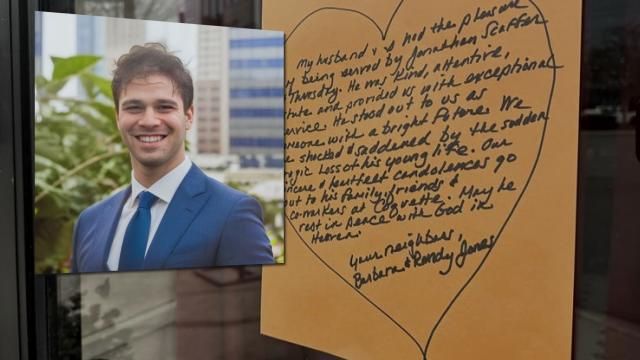 My husband & I had the pleasure
of being served by Jonathan Scaffer
Thursday. He was kind, attentive,
and provided us with exceptional
service. He stood out to us as
someone with a bright future. We
shocked & saddened by the sudden
tragic loss of his young life. Our
sincere & heartfelt condolences go
out to his family, friends &
co-workers at Coquette. May he
rest in peace with God in
Heaven.
Your neighbors,
Barbara & Randy Jones